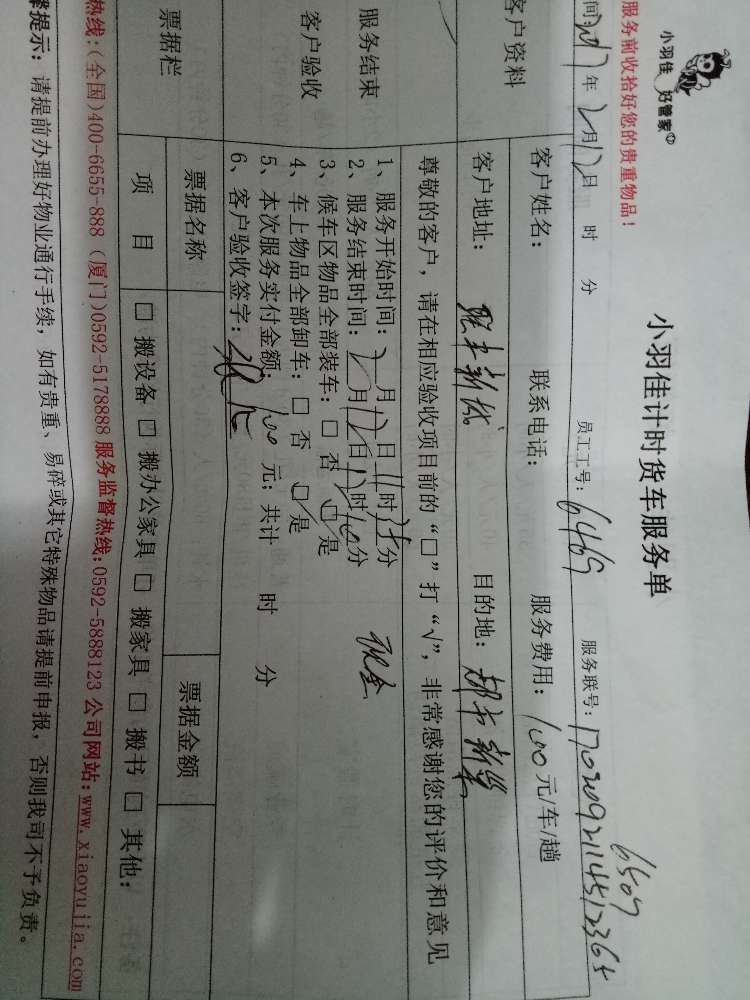 小羽佳 好管家
小羽佳计时货车服务单
服务前收拾好您的贵重物品!
6509
间: 2017年2月12日 时 分 员工工号: 6469 服务联号:
客户资料
客户姓名: 联系电话: 服务费用: 100元/车/趟
客户地址: 联丰新城 目的地: 都市新巢
尊敬的客户,请在相应验收项目前的“□”打“√”,非常感谢您的评价和意见
服务结束
客户验收
1、服务开始时间: 2月12日11时35分
2、服务结束时间: 2月12日12时10分
现金
3、候车区物品全部装车: □ 否 ☑ 是
4、车上物品全部卸车: □ 否 ☑ 是
5、本次服务实付金额: 100 元; 共计 时 分
6、客户验收签字:
票据栏
票据名称 票据金额
项 目 □ 搬设备 □ 搬办公家具 □ 搬家具 □ 搬书 □ 其他:
热线:(全国)400-6655-888 (厦门)0592-5178888 服务监督热线:0592-5888123 公司网站:www.xiaoyujia.com
提示: 请提前办理好物业通行手续, 如有贵重、易碎或其它特殊物品请提前申报, 否则我司不予负责。